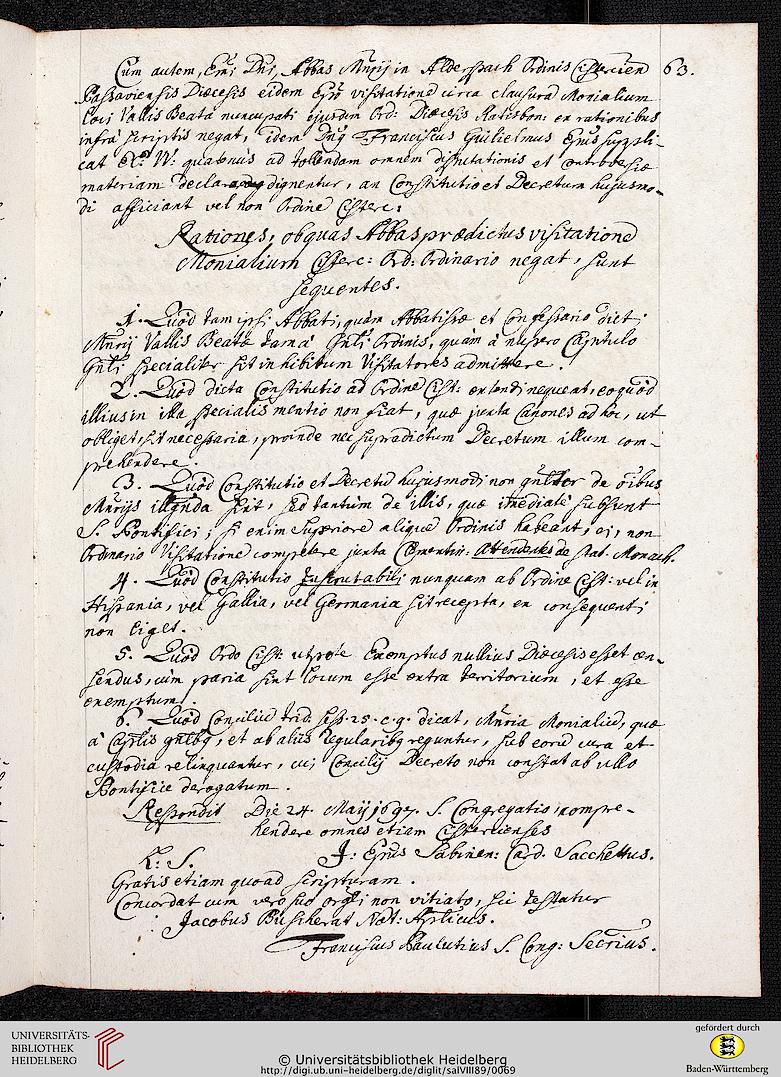 63.
Cum autem, Em͞i D͞ni, Abbas M͞nrij in Alderspach Ordinis Cistercien
Passaviensis Diœcesis eidem Epō visitationē circa clausurā Monialium
Loci Vallis Beatæ nuncupati ejusdem Ord: Diœcesis Ratisboni: ex rationibus
infrà scriptis negat, idem D͞nq Franciscus Guilielmus Ep͞us suppli-
cat quatenus ad tollendam omnem disputationis et controversiæ
materiam declarare dignentur, an Constitutio et Decretum hujusmo-
di afficiant vel non Ordinē Cisterc:
Rationes, ob quas Abbas prædictus visitationē
Monialium Cisterc: Ord: Ordinario negat, sunt
sequentes.
1. Quòd tam ipsi Abbati, quàm Abbatissæ et Confessario dicti
M͞nrij Vallis Beatæ tam à Gn͞li Ordinis, quàm à nupero Capitulo
Gn͞li specialiter sit inhibitum Visitatores admittere.
2. Quòd dicta Constitutio ad Ordinē Cist: extendi nequeat, eo quòd
illius in illa specialis mentio non fiat, quæ juxta Canones ad hoc, ut
obliget, sit necessaria, proinde nec supradictum Decretum illum com-
prehendere.
3. Quòd Constitutio et Decretū hujusmodi non gn͞lter de o͞ibus
M͞nrijs illgnda sint, sed tantùm de illis, quæ im͞ediatè subsunt
S. Pontifici; si enim Superiorē aliquē Ordinis habeant, ei, non
Ordinario Visitationē competere juxta Clementin: Attendentes de stat. Monach.
4. Quòd Constitutio Inscrutabili nunquam ab Ordine Cist: vel in
Hispania, vel Gallia, vel Germania sit recepta, ex consequenti
non liget.
5. Quòd Ordo Cist: utpote Exemptus nullius Diœcesis esset cen-
sendus, cùm paria sint locum esse extra territorium, et esse
exemptum.
6. Quòd Conciliū trid: sess. 25. c. 9. dicat, M͞nria Monialiū, quæ
à Cap͞tlis gn͞lbq, et ab alijs regularibq reguntur, sub eorū cura et
custodia relinquantur, cui Concilij Decreto non constat ab ullo
Pontifice derogatum.
Respondit Die 24. Maij 1697. S. Congregatio, compre-
hendere omnes etiam Cistercienses
L: S. J: Ep͞us Sabinen: Card. Sacchettus.
Gratis etiam quoad scripturam.
Concordat cum vero suo orgli non vitiato, sic testatur
Jacobus Buscherat Not: Ap͞licus.
Franciscus Paulutius S. Cong: Secrius.
UNIVERSITÄTS-
BIBLIOTHEK
HEIDELBERG
© Universitätsbibliothek Heidelberg
http://digi.ub.uni-heidelberg.de/diglit/salVIII89/0069
gefördert durch
Baden-Württemberg